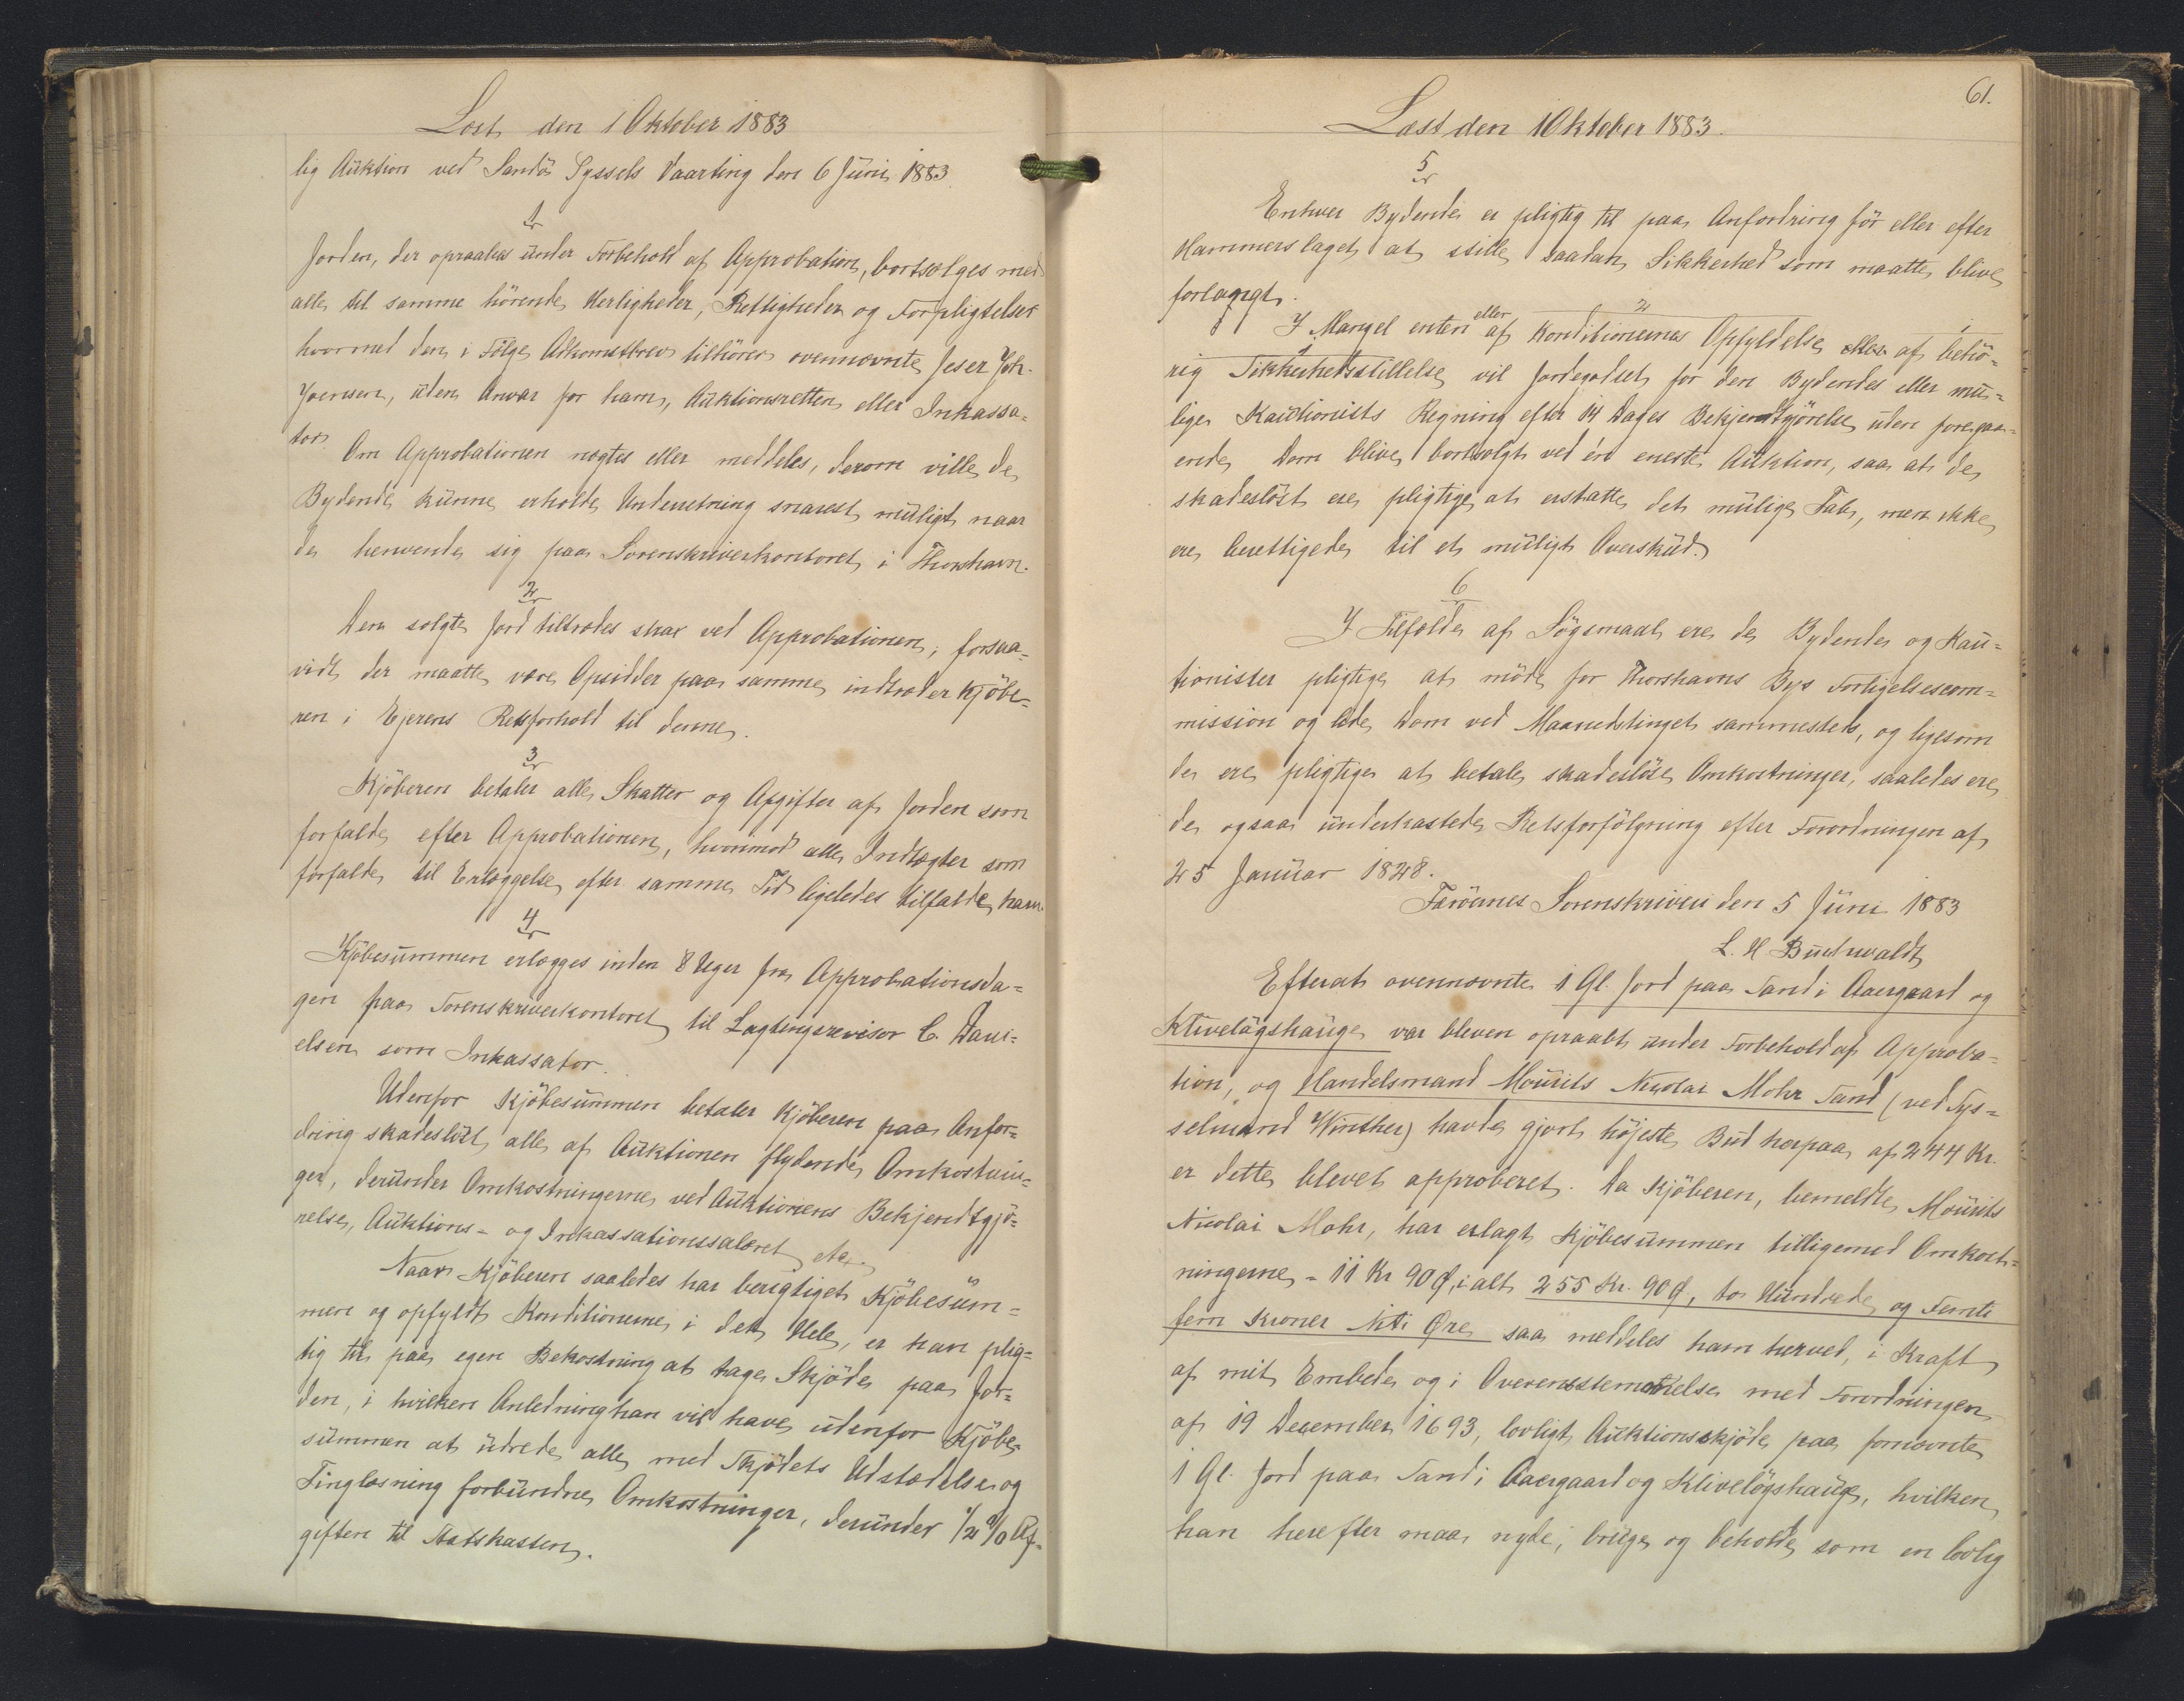 Læst den 1 Oktober 1883
lig Auktion ved Sandö Syssels Vaarting den 6 Juni 1883.
1
Jorden, der opraabes under Forbehold af Approbation, bortsælges med
alle til samme hörende Herligheder, Rettigheder og Forpligtelser
hvormed den i Fölge Adkomstbrev tilhörer ovennævnte Joh.
Joensen, uden Ansvar for ham, Auktionsretten eller Inkassa-
tor.
Om Approbationen nægtes eller meddeles, derom ville de
Bydende kunne erholde Underretning snarest muligt naar
de henvende sig paa Sorenskriverkontoret i Thorshavn.
2
Den solgte Jord tiltrædes strax ved Approbationen; forsaa-
vidt der maatte være Opsidder paa samme indtræder Kjöbe-
ren i Ejerens Retsforhold til denne.
3
Kjöberen betaler alle Skatter og Afgifter af Jorden som
forfalde efter Approbationen, hvorimod alle Indtægter som
forfalde til Erlæggelse efter samme Tid ligeledes tilfalde ham.
4
Kjöbesummen erlægges inden 8 Uger fra Approbationsda-
gen paa Sorenskriverkontoret til Lagtingsrevisor C. Dani-
elsen som Inkassator.
Udenfor Kjöbesummen betaler Kjöberen paa Anfor-
dring skadeslöst alle af Auktionen flydende Omkostnin-
ger, derunder Omkostningerne ved Auktionens Bekjendtgjö-
relse, Auktions- og Inkassationssalæret etc.
Naar Kjöberen saaledes har berigtiget Kjöbesum-
men og opfyldt Konditionerne i det Hele, er han plig-
tig til paa egen Bekostning at tage Skjöde paa Jor-
den, i hvilken Anledning han vil have udenfor Kjöbe-
summen at udrede alle med Skjödets Udstædelse og
Tinglæsning forbundne Omkostninger, derunder 1/2 % Af-
giften til Statskassen.
61.
Læst den 1 Oktober 1883.
5
Enhver Bydende er pligtig til paa Anfordring för eller efter
Hammerslaget at stille saadan Sikkerhed som maatte blive
forlangt.
I Mangel enten eller af Konditionernes Opfyldelse eller af behö-
rig Sikkerhedsstillelse vil Jordegodset for den Bydendes eller mu-
lige Kautionists Regning efter 14 Dages Bekjendtgjörelse uden foregaa-
ende Dom blive bortsolgt ved én eneste Auktion, saa at de
skadeslöst ere pligtige at erstatte det mulige Tab, men ikke
ere berettigede til et muligt Overskud.
6
I Tilfælde af Sögsmaal ere de Bydende og Kau-
tionister pligtige at möde for Thorshavns Bys Forligelsescom-
mission og lide Dom ved Maanedstinget sammesteds, og ligesom
de ere pligtige at betale skadeslöse Omkostninger, saaledes ere
de ogsaa underkastede Retsforfölgning efter Forordningen af
25 Januar 1828.
Færöernes Sorenskriveri den 5 Juni 1883
L. H Buchwaldt
Efterat ovennævnte 1 Gl. Jord paa Sand i Aaergaard og
Klivelögshauge var bleven opraabt under Forbehold af Approba-
tion, og Handelsmand Mourits Nicolai Mohr Sand (ved Sys-
selmand Winther) havde gjort höjeste Bud herpaa af 244 Kr.
er dette blevet approberet. Da Kjöberen, bemeldte Mourits
Nicolai Mohr, har erlagt Kjöbesummen tilligemed Omkost-
ningerne = 11 Kr 90 Ø, i alt 255 Kr. 90 Ø, to Hundrede og Femti
fem Kroner Niti Øre saa meddeles ham herved, i Kraft
af mit Embede og i Overensstemmelse med Forordningen
af 19 December 1693, lovligt Auktionsskjöde paa fornævnte
1 Gl. Jord paa Sand i Aaergaard og Klivelögshauge, hvilken
han herefter maa nyde, bruge og beholde som en lovlig